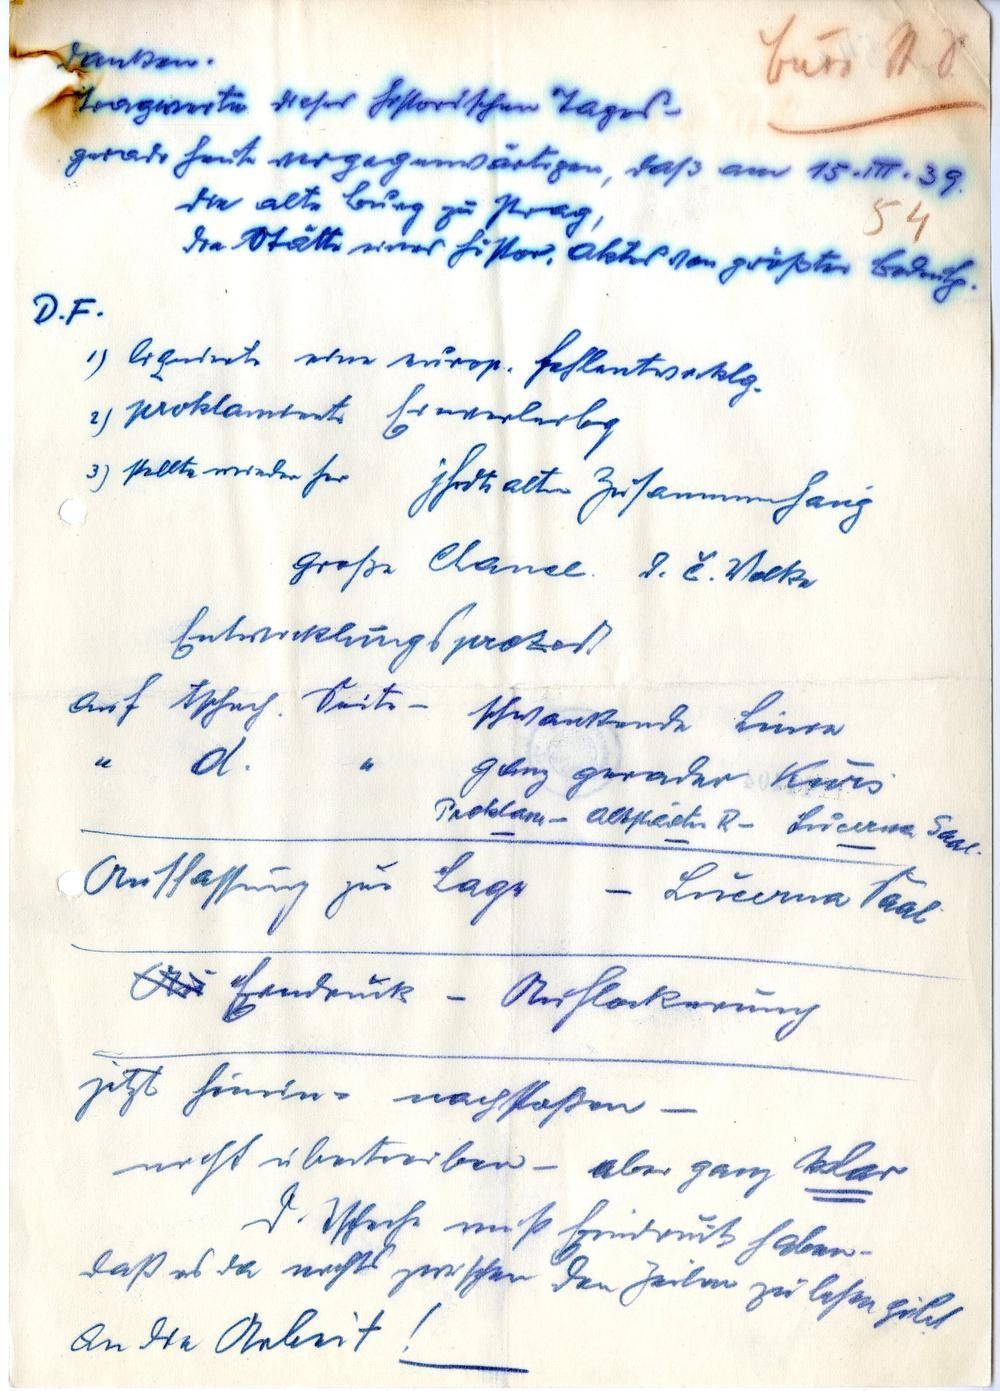 danken.
Tragweite dieses historischen Tages -
gerade heute vergegenwärtigen, daß am 15.III.39.
54
die alte Burg zu Prag,
die Stätte eines histor. Aktes von größter Bedeutg.
D.F.
1) liquidierte eine europ. Fehlentwicklg.
2) proklamierte
3) stellte wieder her jhdte alten Zusammenhang
große Chance d. č. Volke
Entwicklungsprozeß
auf tschech. Seite - schwankende Linie
" d. " ganz gerader Kurs
Proklam - Altstädter R - Lucerna Saal.
Auffassung zur Lage - Lucerna Saal
Eindruck - Auflockerung
jetzt hinein - nachstoßen -
nicht übertreiben - aber ganz klar
D. Tscheche muß Eindruck haben -
daß es da nichts zwischen den Zeilen zu lesen gibt
an die Arbeit!